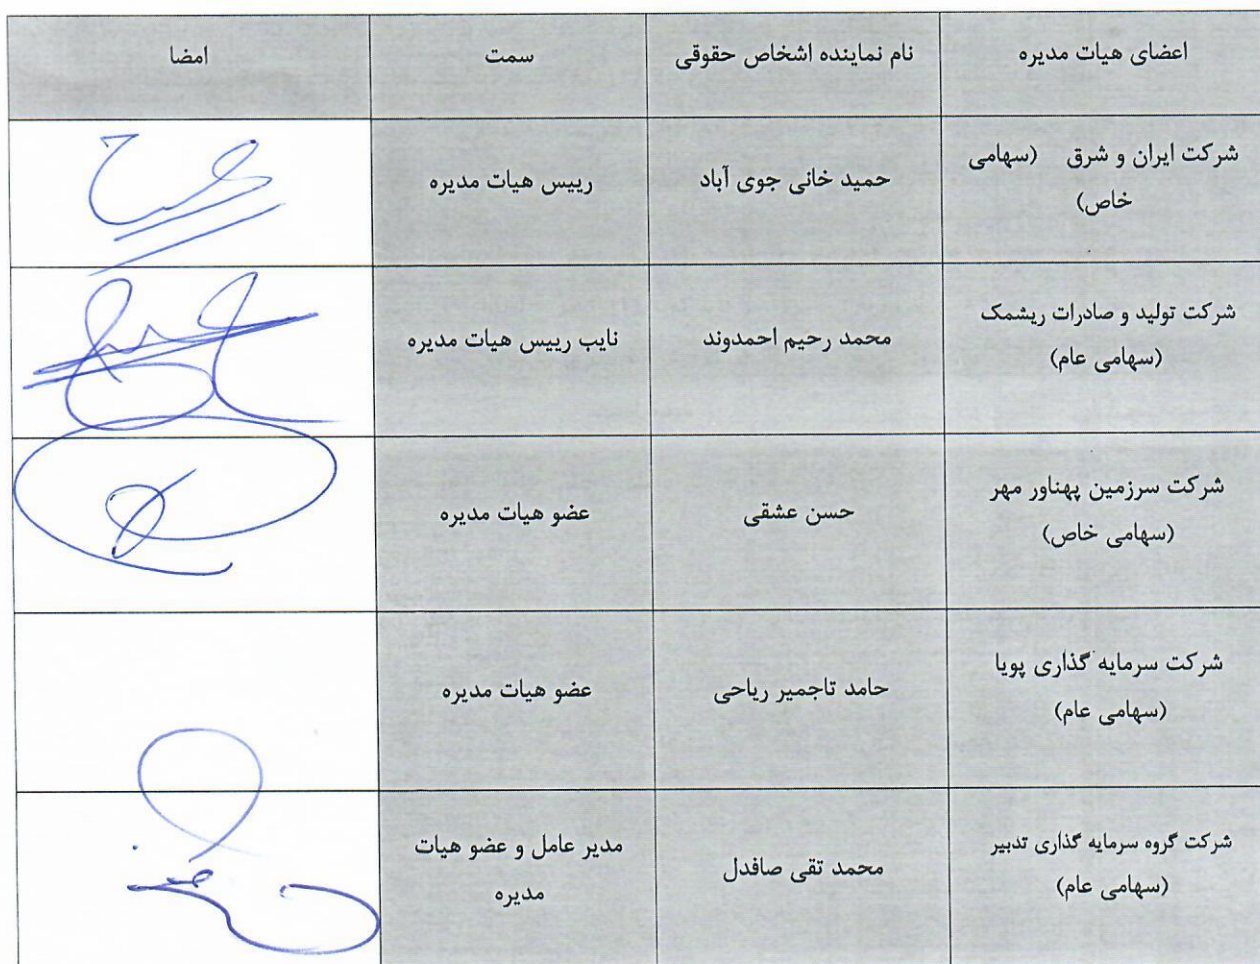 اعضای هیات مدیره
نام نماینده اشخاص حقوقی
سمت
امضا
شرکت ایران و شرق (سهامی
خاص)
حمید خانی جوی آباد
رییس هیات مدیره
شرکت تولید و صادرات ریشمک
(سهامی عام)
محمد رحیم احمدوند
نایب رییس هیات مدیره
شرکت سرزمین پهناور مهر
(سهامی خاص)
حسن عشقی
عضو هیات مدیره
شرکت سرمایه گذاری پویا
(سهامی عام)
حامد تاجمیر ریاحی
عضو هیات مدیره
شرکت گروه سرمایه گذاری تدبیر
(سهامی عام)
محمد تقی صافدل
مدیر عامل و عضو هیات
مدیره